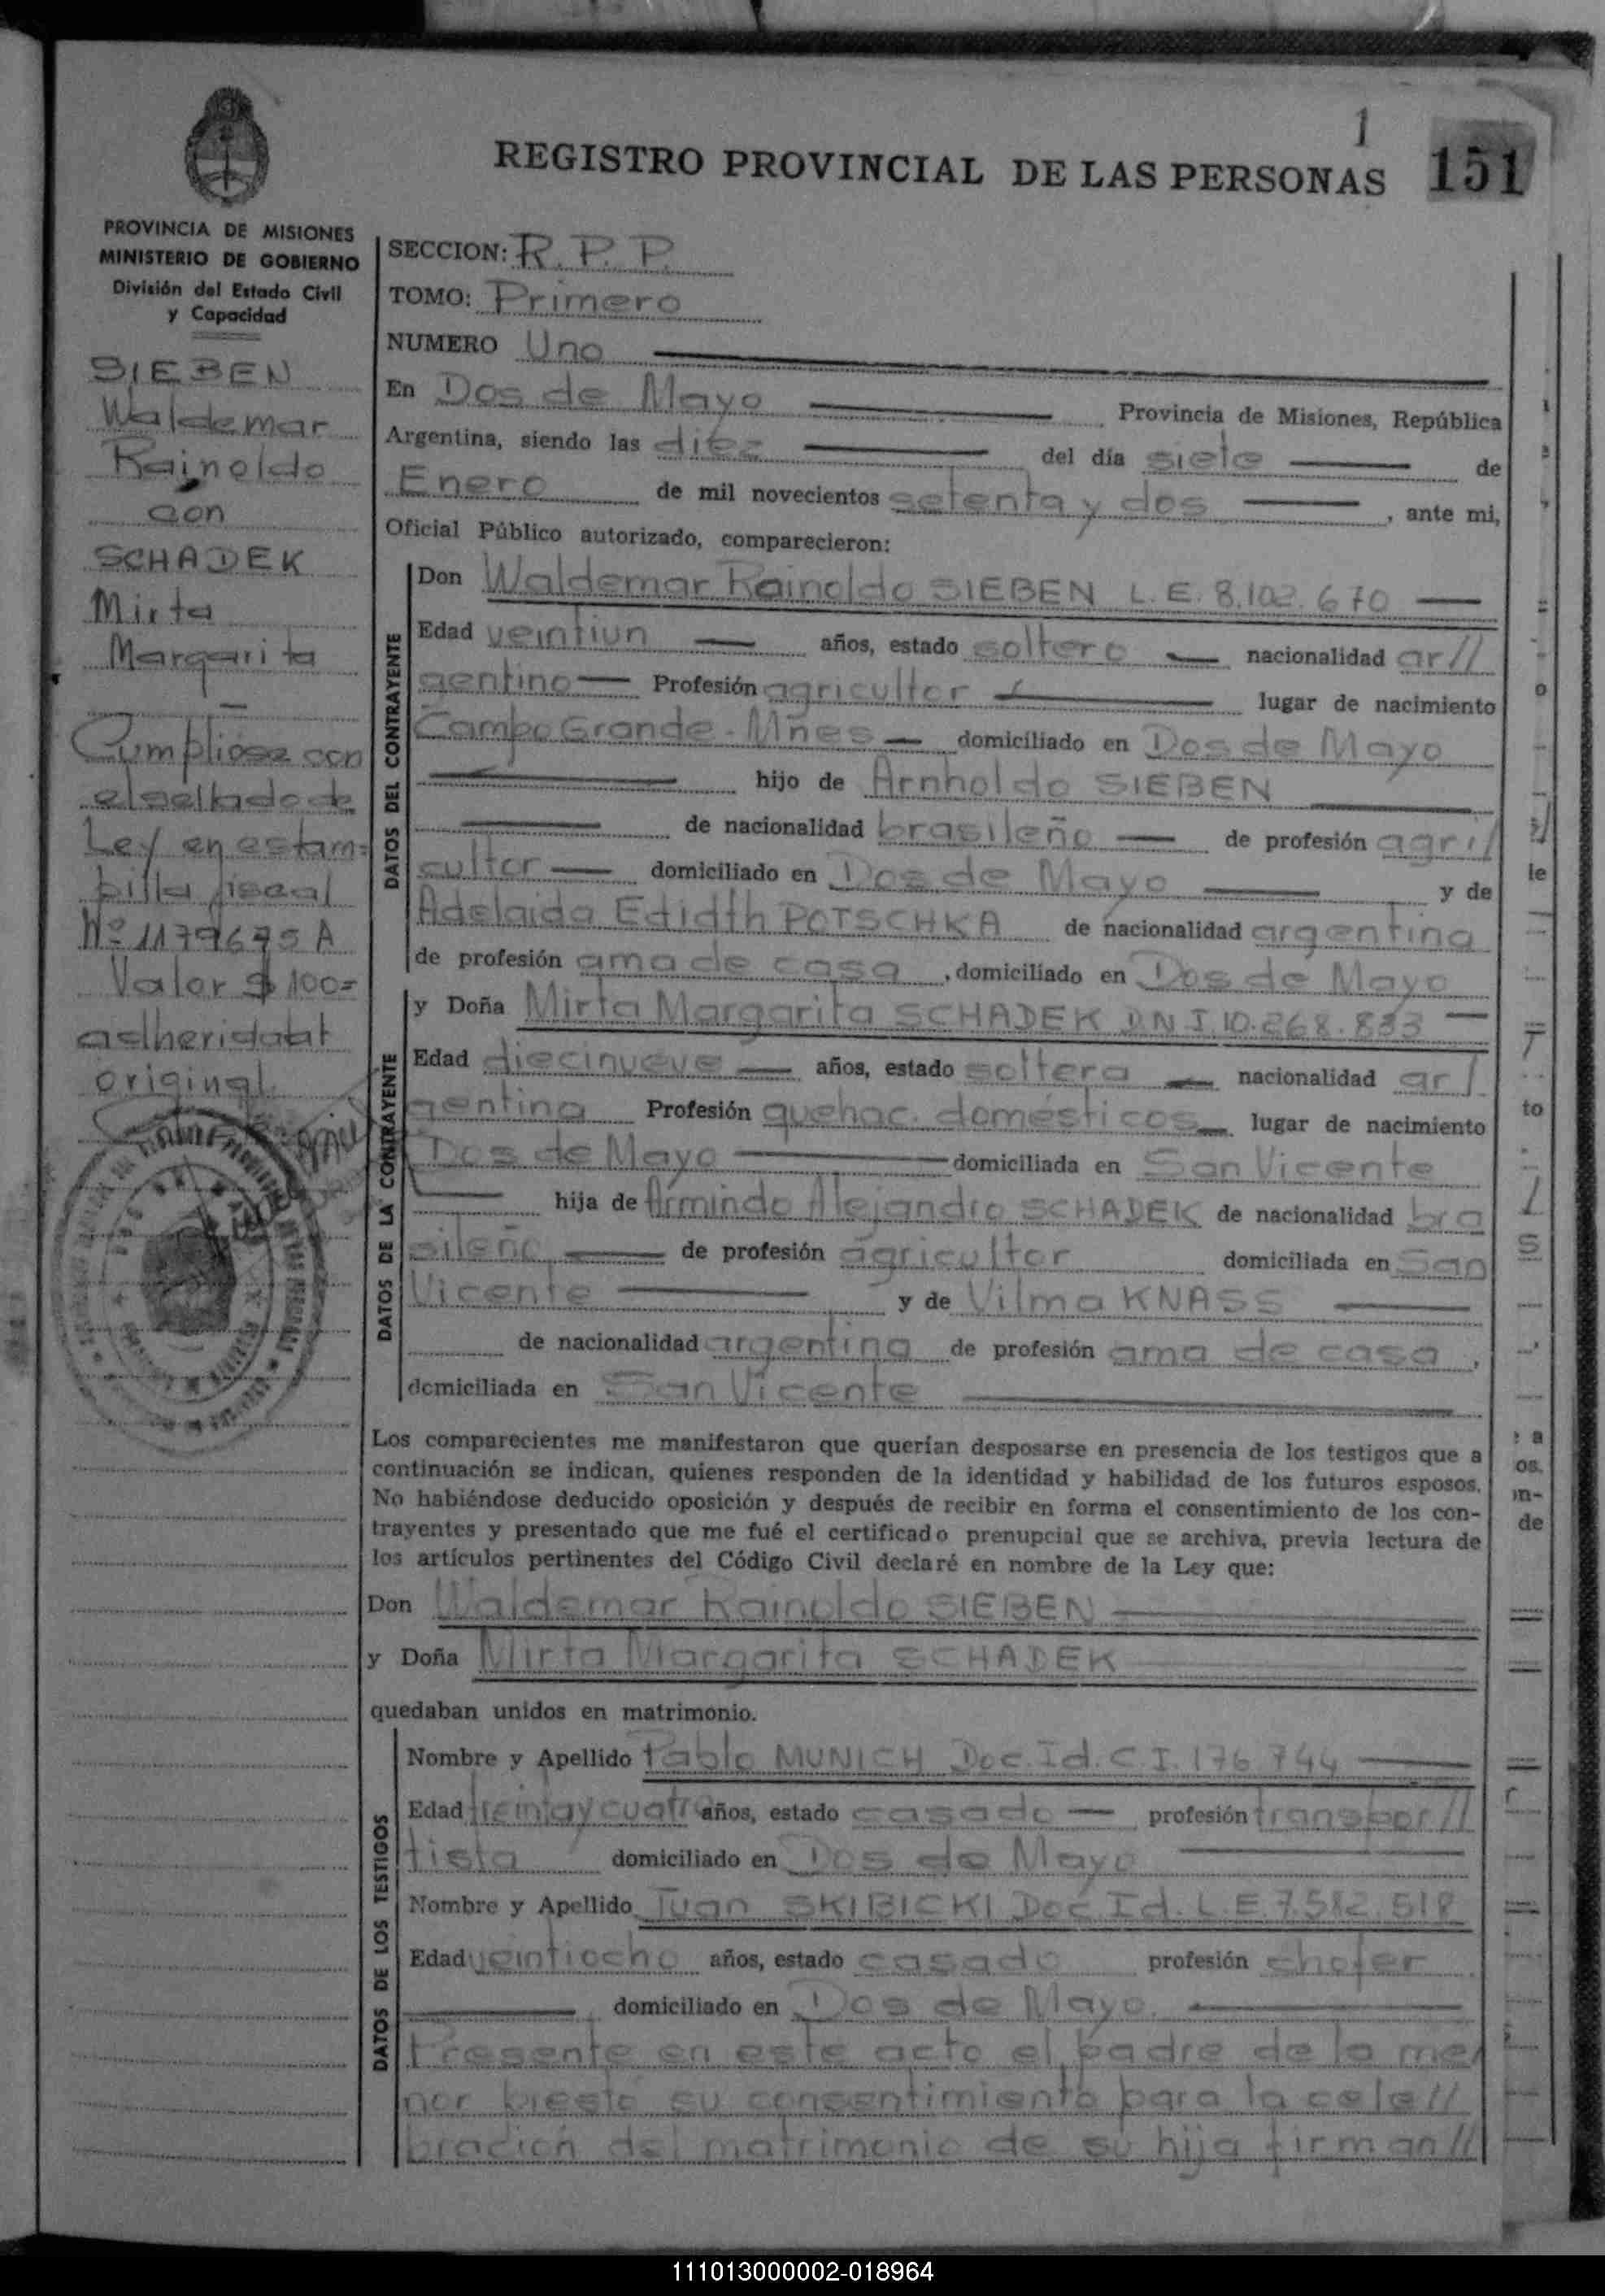 1
REGISTRO PROVINCIAL DE LAS PERSONAS 151
PROVINCIA DE MISIONES
MINISTERIO DE GOBIERNO
División del Estado Civil
y Capacidad
SIEBEN
Waldemar
Rainoldo
con
SCHADEK
Mirta
Margarita
Cumplióse con
el sellado de
Ley en estam=
pilla fiscal
Nº 1179675 A
Valor $ 100=
adherida al
original
SECCION: R. P. P.
TOMO: Primero
NUMERO Uno
En Dos de Mayo Provincia de Misiones, República
Argentina, siendo las diez del día siete de
Enero de mil novecientos setenta y dos, ante mi,
Oficial Público autorizado, comparecieron:
DATOS DEL CONTRAYENTE
Don Waldemar Rainoldo SIEBEN L. E. 8.102.670
Edad veintiun años, estado soltero nacionalidad ar//
gentino Profesión agricultor lugar de nacimiento
Campo Grande - Mnes domiciliado en Dos de Mayo
hijo de Arnholdo SIEBEN
de nacionalidad brasileño de profesión agri//
cultor domiciliado en Dos de Mayo y de
Adelaida Edidth POTSCHKA de nacionalidad argentina
de profesión ama de casa, domiciliado en Dos de Mayo
DATOS DE LA CONTRAYENTE
y Doña Mirta Margarita SCHADEK D N I. 10.268.833
Edad diecinueve años, estado soltera nacionalidad ar/
gentina Profesión quehac. domésticos lugar de nacimiento
Dos de Mayo domiciliada en San Vicente
hija de Armindo Alejandro SCHADEK de nacionalidad bra
sileño de profesión agricultor domiciliada en San
Vicente y de Vilma KNASS
de nacionalidad argentina de profesión ama de casa,
domiciliada en San Vicente
Los comparecientes me manifestaron que querían desposarse en presencia de los testigos que a
continuación se indican, quienes responden de la identidad y habilidad de los futuros esposos.
No habiéndose deducido oposición y después de recibir en forma el consentimiento de los con-
trayentes y presentado que me fué el certificado prenupcial que se archiva, previa lectura de
los artículos pertinentes del Código Civil declaré en nombre de la Ley que:
Don Waldemar Rainoldo SIEBEN
y Doña Mirta Margarita SCHADEK
quedaban unidos en matrimonio.
DATOS DE LOS TESTIGOS
Nombre y Apellido Pablo MUNICH Doc. Id. C. I. 176 744
Edad treinta y cuatro años, estado casado profesión transpor//
tista domiciliado en Dos de Mayo
Nombre y Apellido Juan SKIBICKI Doc Id. L. E. 7.512.518
Edad veintiocho años, estado casado profesión chofer
domiciliado en Dos de Mayo.
Presente en este acto el padre de la me/
nor presto su consentimiento para la cele//
bración del matrimonio de su hija firman//
111013000002-018964